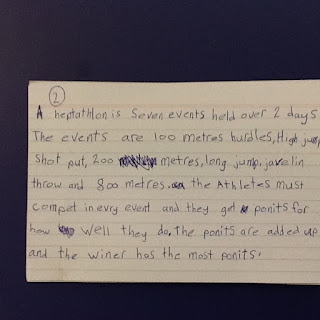 2
A heptathlon is Seven events held over 2 days
The events are 100 metres hurdles, High jump
Shot put, 200 metres, long jump, javelin
throw and 800 metres. the Athletes must
compet in evry event and they get ponits for
how well they do. The ponits are added up
and the winer has the most ponits.